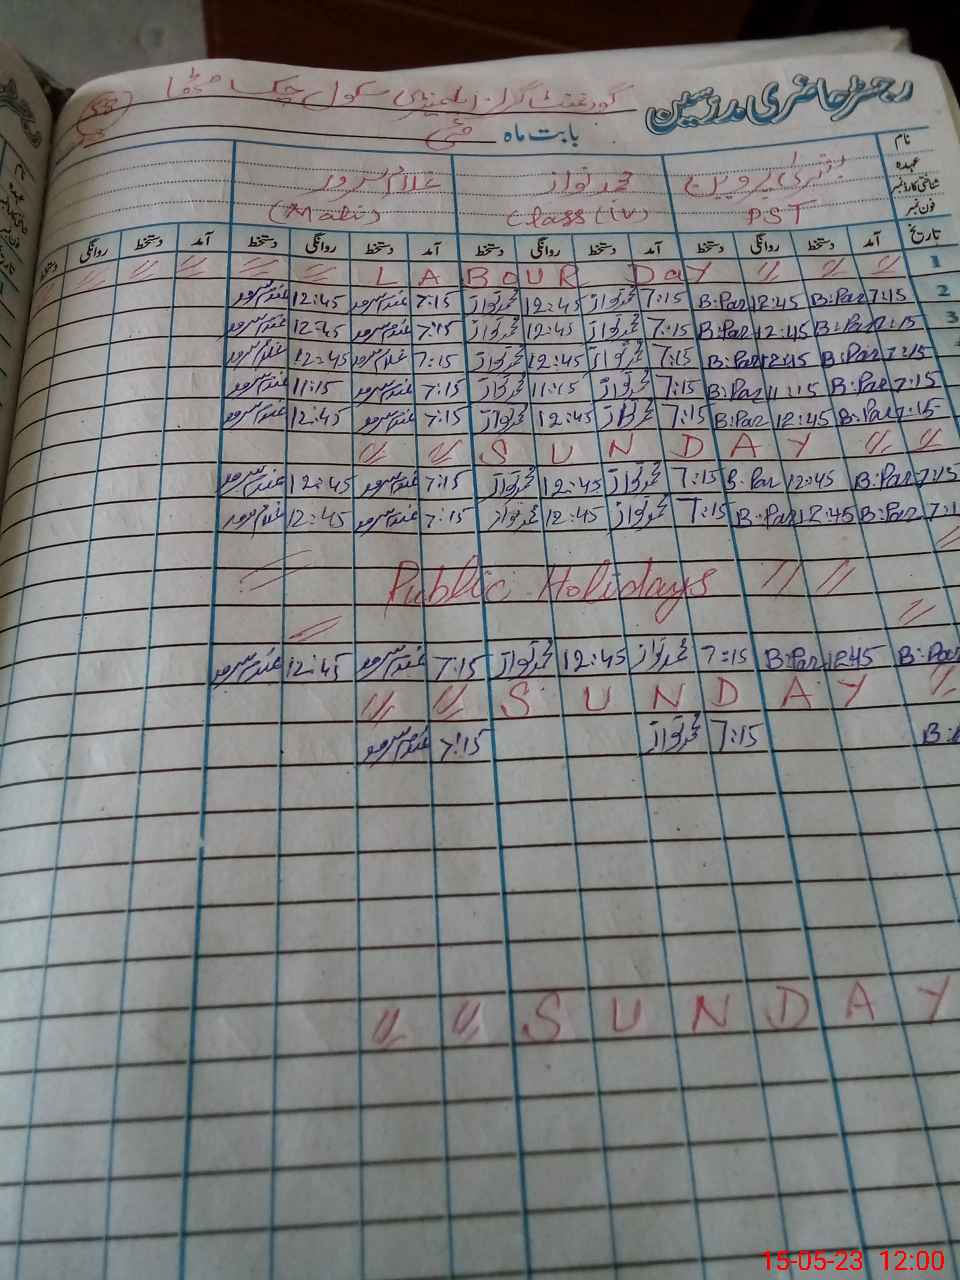 رجسٹر حاضری مدرسین گورنمنٹ گرلز ایلیمنٹری سکول چک
بابت ماہ مئی
نام پروین محمد نواز غلام سرور
عہدہ
شناختی کارڈ نمبر
فون نمبر PST Class (iv) (Mali)
تاریخ آمد دستخط روانگی دستخط آمد دستخط روانگی دستخط آمد دستخط روانگی دستخط آمد دستخط روانگی دستخط
1 〃 〃 〃 LABOUR Day 〃 〃 〃 〃 〃 〃
2 7:15 B:Par 12:45 B:Par 7:15 محمد نواز 12:45 محمد نواز 7:15 غلام سرور 12:45 غلام سرور
3 7:15 B:Par 12:45 B:Par 7:15 محمد نواز 12:45 محمد نواز 7:15 غلام سرور 12:45 غلام سرور
7:15 B:Par 12:45 B:Par 7:15 محمد نواز 12:45 محمد نواز 7:15 غلام سرور 12:45 غلام سرور
7:15 B:Par 11:15 B:Par 7:15 محمد نواز 11:15 محمد نواز 7:15 غلام سرور 11:15 غلام سرور
7:15 B:Par 12:45 B:Par 7:15 محمد نواز 12:45 محمد نواز 7:15 غلام سرور 12:45 غلام سرور
〃 〃 SUNDAY 〃 〃
7:15 B:Par 12:45 B:Par 7:15 محمد نواز 12:45 محمد نواز 7:15 غلام سرور 12:45 غلام سرور
7:1 B:Par 12:45 B:Par 7:15 محمد نواز 12:45 محمد نواز 7:15 غلام سرور 12:45 غلام سرور
〃 Public Holidays 〃 〃
B:Par 12:45 B:Par 7:15 محمد نواز 12:45 محمد نواز 7:15 غلام سرور 12:45 غلام سرور
〃 〃 SUNDAY 〃
B: 7:15 محمد نواز 7:15 غلام سرور
〃 〃 SUNDAY
15-05-23 12:00